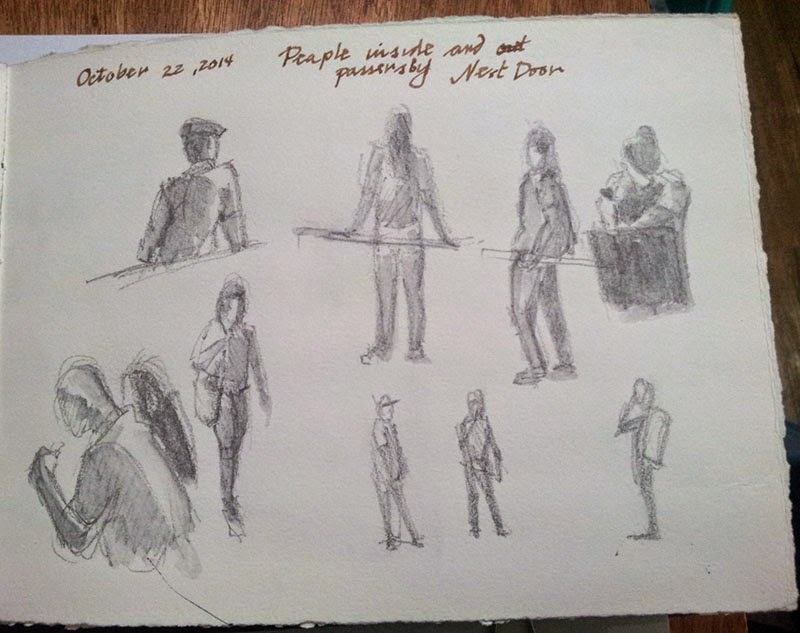 October 22, 2014
People inside and out
passersby Next Door